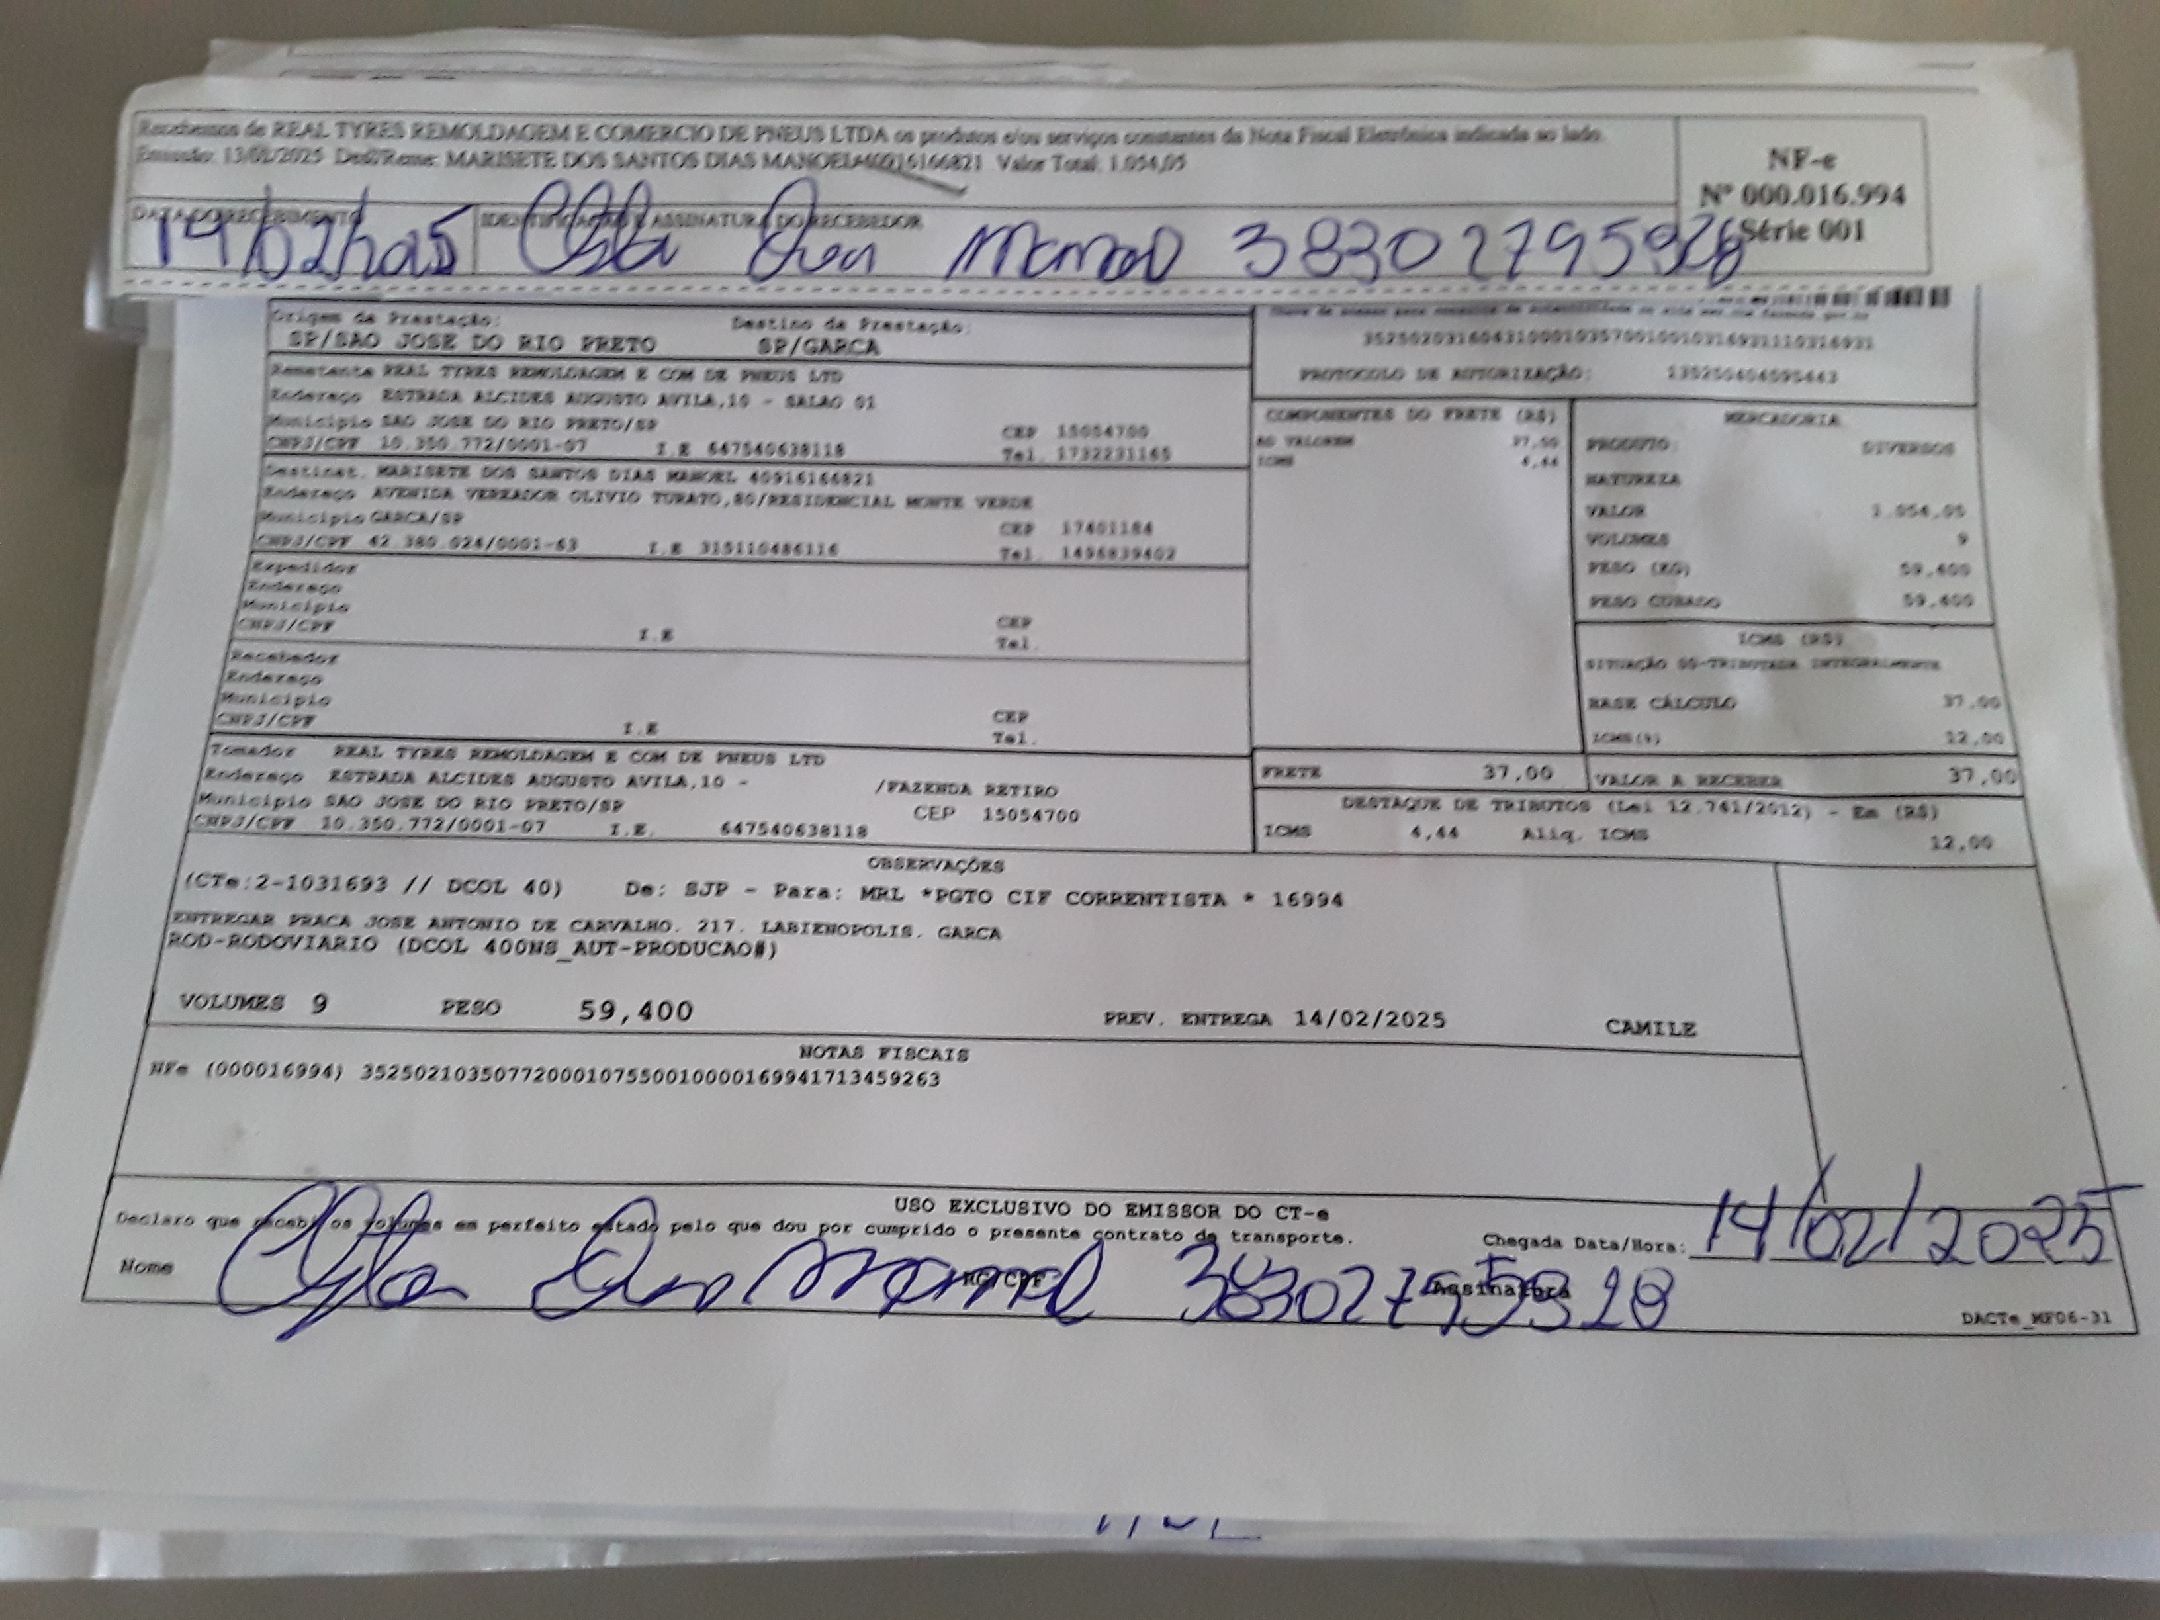 Recebemos de REAL TYRES REMOLDAGEM E COMERCIO DE PNEUS LTDA os produtos e/ou serviços constantes da Nota Fiscal Eletrônica indicada ao lado.
Emissão: 13/02/2025 Dest/Reme: MARISETE DOS SANTOS DIAS MANOEL 40916166821 Valor Total: 1.054,05
NF-e
Nº 000.016.994
Série 001
DATA DO RECEBIMENTO
IDENTIFICAÇÃO E ASSINATURA DO RECEBEDOR
14/02/2025 38302795928
Origem da Prestação: Destino da Prestação:
SP/SAO JOSE DO RIO PRETO SP/GARCA
35250203160431000103570010010316931110316931
PROTOCOLO DE AUTORIZAÇÃO: 135250404095443
Remetente REAL TYRES REMOLDAGEM E COM DE PNEUS LTD
Endereço ESTRADA ALCIDES AUGUSTO AVILA,10 - SALAO 01
Município SAO JOSE DO RIO PRETO/SP CEP 15054700
CNPJ/CPF 10.350.772/0001-07 I.E 647540638118 Tel. 1732231165
Destinat. MARISETE DOS SANTOS DIAS MANOEL 40916166821
Endereço AVENIDA VEREADOR OLIVIO TURATO,80/RESIDENCIAL MONTE VERDE
Município GARCA/SP CEP 17401184
CNPJ/CPF 42.380.024/0001-63 I.E 315110486116 Tel. 1496839402
Expedidor
Endereço
Município CEP
CNPJ/CPF I.E Tel.
Recebedor
Endereço
Município CEP
CNPJ/CPF I.E Tel.
Tomador REAL TYRES REMOLDAGEM E COM DE PNEUS LTD
Endereço ESTRADA ALCIDES AUGUSTO AVILA,10 - /FAZENDA RETIRO
Município SAO JOSE DO RIO PRETO/SP CEP 15054700
CNPJ/CPF 10.350.772/0001-07 I.E. 647540638118
COMPONENTES DO FRETE (R$)
AD VALOREM 37,00
ICMS 4,44
MERCADORIA
PRODUTO: DIVERSOS
NATUREZA
VALOR 1.054,05
VOLUMES 9
PESO (KG) 59,400
PESO CUBADO 59,400
ICMS (R$)
SITUAÇÃO 00-TRIBUTADA INTEGRALMENTE
BASE CÁLCULO 37,00
ICMS(%) 12,00
FRETE 37,00 VALOR A RECEBER 37,00
DESTAQUE DE TRIBUTOS (Lei 12.741/2012) - Em (R$)
ICMS 4,44 Aliq. ICMS 12,00
OBSERVAÇÕES
(CTe:2-1031693 // DCOL 40) De: SJP - Para: MRL *PGTO CIF CORRENTISTA * 16994
ENTREGAR PRACA JOSE ANTONIO DE CARVALHO, 217, LABIENOPOLIS, GARCA
ROD-RODOVIARIO (DCOL 400NS_AUT-PRODUCAO#)
VOLUMES 9 PESO 59,400 PREV. ENTREGA 14/02/2025 CAMILE
NOTAS FISCAIS
NFe (000016994) 35250210350772000107550010000169941713459263
USO EXCLUSIVO DO EMISSOR DO CT-e
Declaro que recebi os volumes em perfeito estado pelo que dou por cumprido o presente contrato de transporte.
Chegada Data/Hora: 14/02/2025
Nome RG/CPF 38302795928 Assinatura
DACTe_MF06-31